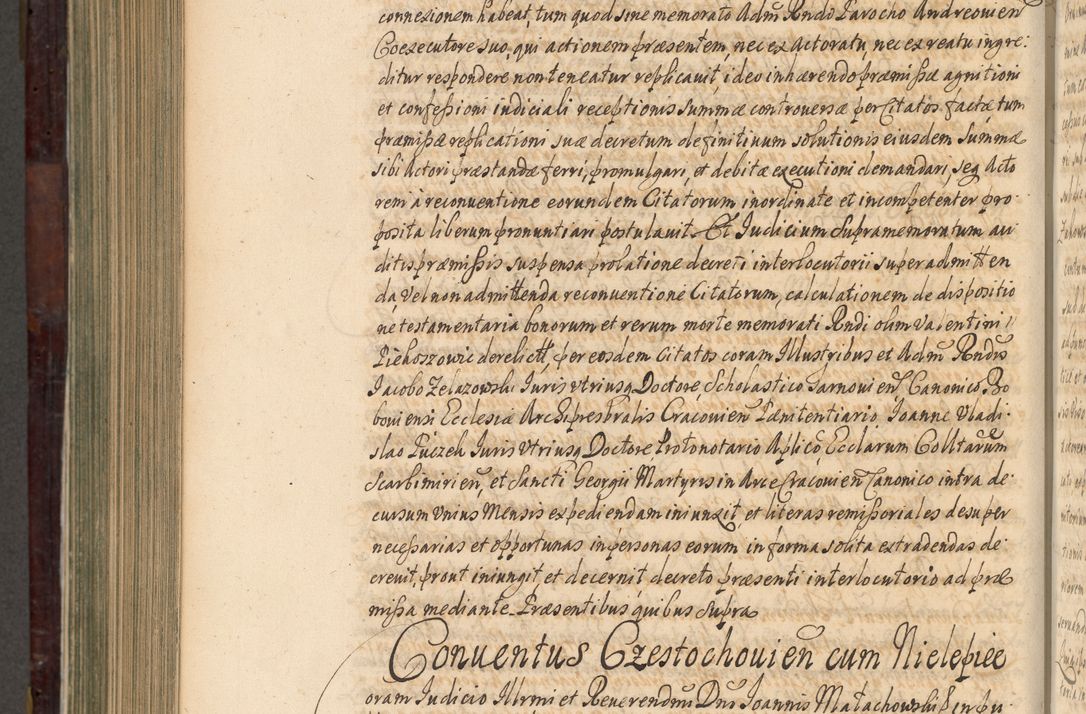 connexionem habeat, tum quod sine memorato Adm̃ Rndo Parocho Andreovien̄
Coexecutore suo, qui actionem præsentem, nec ex Actoratu, nec ex reatu ingre:
ditur respondere non teneatur replicavit, ideo inhærendo præmissæ agnitioni
et confessioni iudiciali receptionis summæ controversæ per Citatos factæ tum
præmissæ replicationi suæ decretum definitivum solutionis eiusdem Summæ
sibi Actori præstandæ ferri, promulgari, et debitæ executioni demandari, seq Acto
rem à reconventione eorundem Citatorum inordinate et incompetenter pro:
posita liberum pronuntiari postulavit. Et Iudicium Supramemoratum au
ditis præmissis suspensa prolatione decreti interlocutorii super admitten
da, vel non admittenda reconventione Citatorum, calculationem de dispositio
ne testamentaria bonorum et rerum morte memorati Rndi olim Valentini
Piekoszowic derelictt, per eosdem Citatos coram Illustribus et Adm̃ Rndis
Iacobo Zelazowski Iuris utriusq Doctore, Scholastico Tarnovien̄ Canonico Bo
boviensi Ecclesiæ Archipresbralis Cracovien̄ Pænitentiario Ioanne Vladi:
slao Puczek Iuris Utriusq Doctore Protonotario Aplico, Ecclarum Colltarum
Scarbimirien̄, et Sancti Georgii Martyris in Arce Cracovien̄ Canonico intra de:
cursum unius Mensis expediendam iniunxit, et literas remissoriales desuper
necessarias et opportunas in personas eorum in forma solita extradendas de:
crevit, prout iniungit, et decernit decreto præsenti interlocutorio ad præ
missa mediante. Præsentibus quibus supra
Conventus Czestochovien̄ cum Nielepiee
oram Iudicio Illrmi et Reverendm̃ Dni Ioannis Małachowski